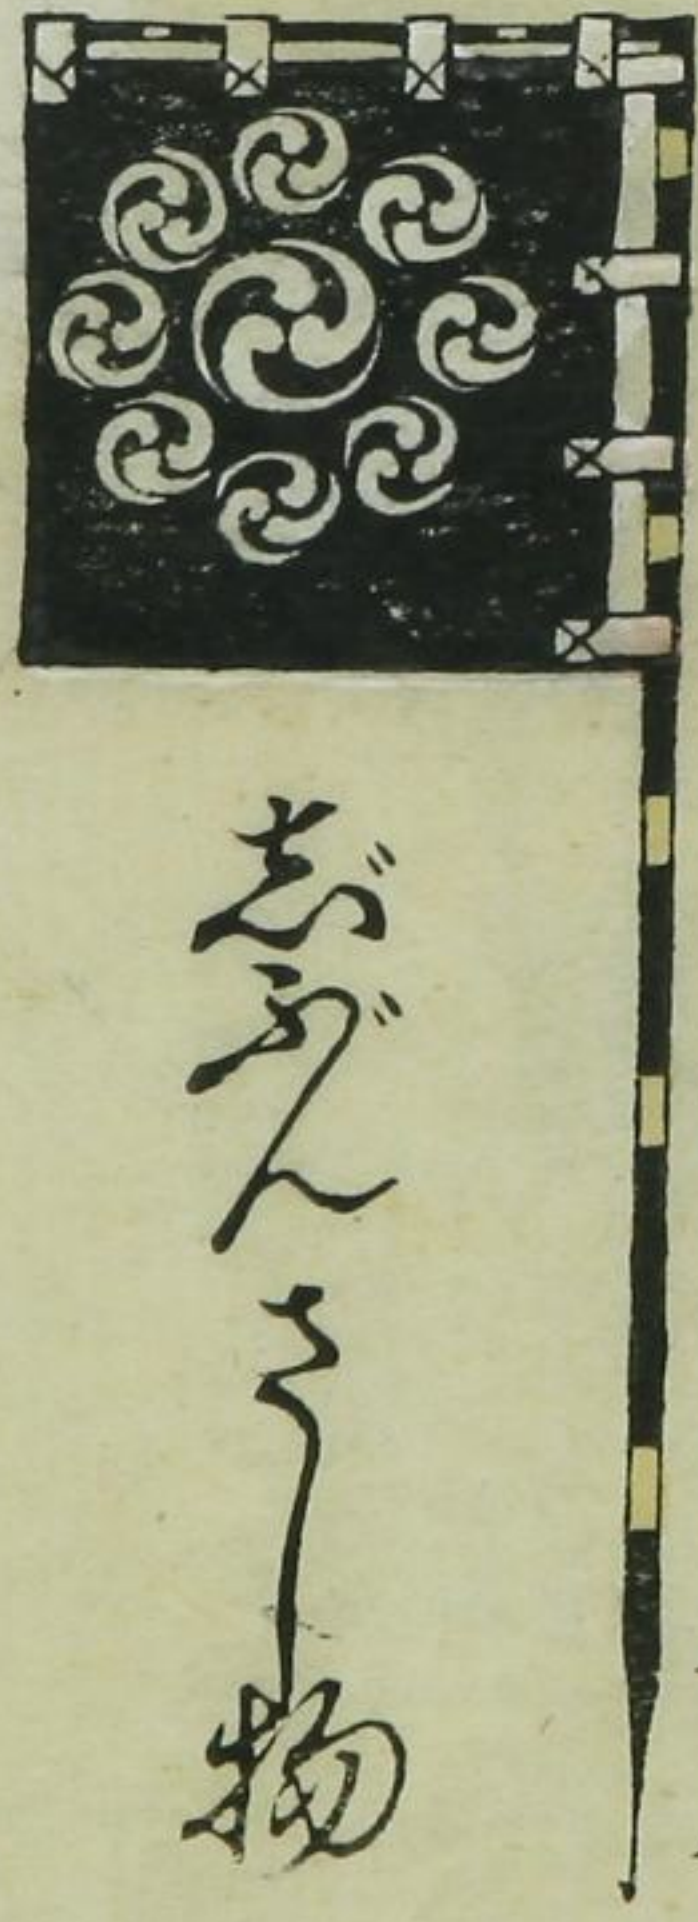 志゛ぶんさし物